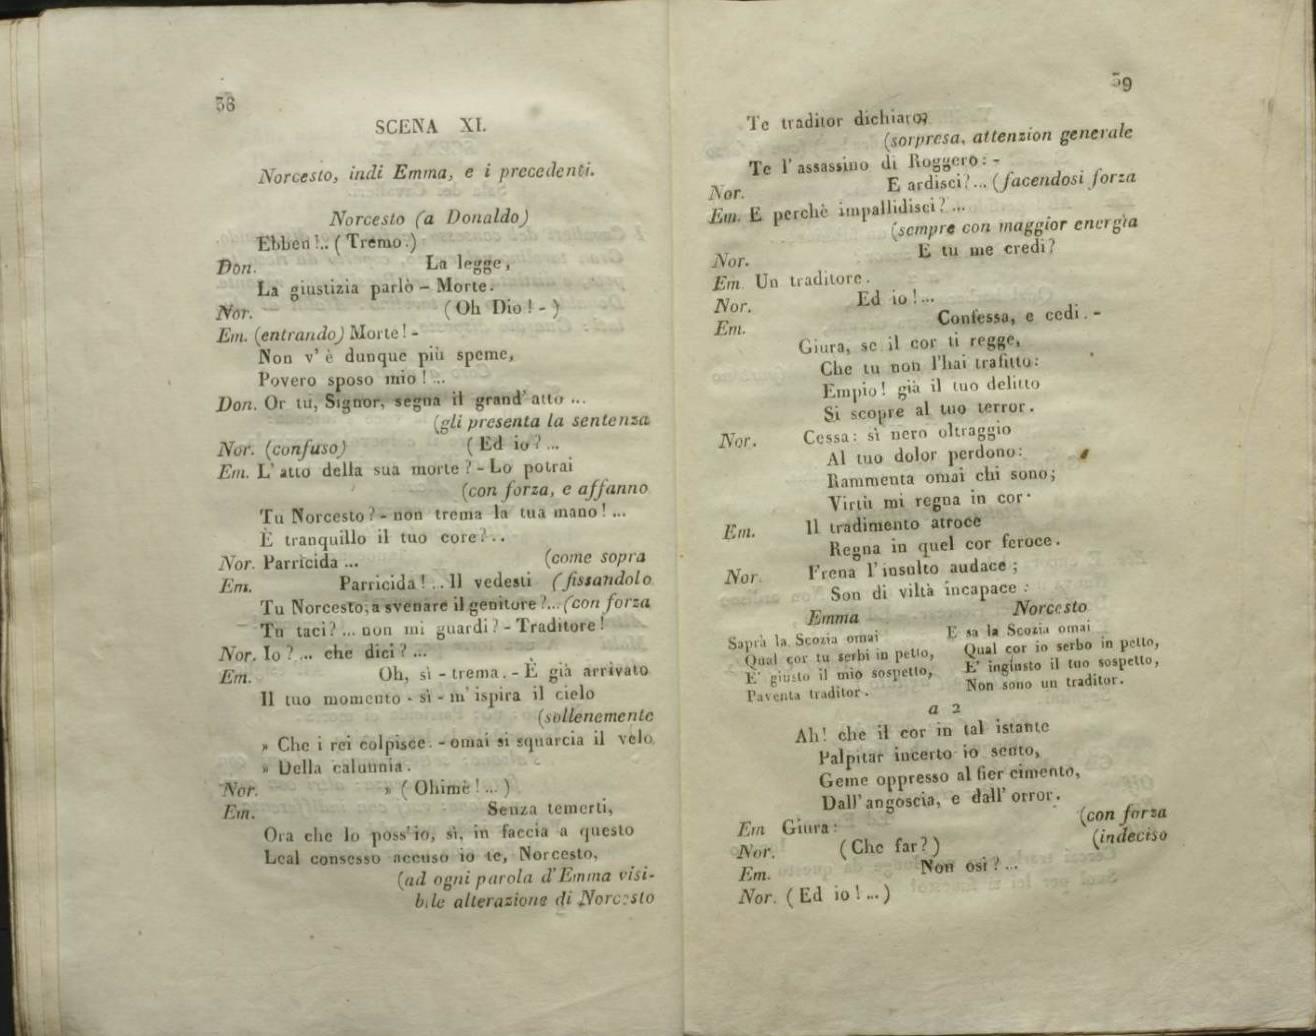 38
SCENA XI.
Norcesto, indi Emma, e i precedenti.
Norcesto (a Donaldo)
Ebben!.. ( Tremo.)
Don. La legge,
La giustizia parlò – Morte.
Nor. (Oh Dio! - )
Em. (entrando) Morte! -
Non v'è dunque più speme,
Povero sposo mio!...
Don. Or tu, Signor, segna il grand'atto ...
(gli presenta la sentenza
Nor. (confuso) ( Ed io?...
Em. L'atto della sua morte? - Lo potrai
(con forza, e affanno
Tu Norcesto? - non trema la tua mano!...
È tranquillo il tuo core?..
Nor. Parricida ... (come sopra
Em. Parricida!.. Il vedesti (fissandolo
Tu Norcesto, a svenare il genitore?... (con forza
Tu taci?... non mi guardi? - Traditore!
Nor. Io?... che dici?...
Em. Oh, sì - trema. - È già arrivato
Il tuo momento - sì - m'ispira il cielo
(sollenemente
» Che i rei colpisce. - omai si squarcia il velo
» Della calunnia.
Nor. » ( Ohimè!... )
Em. Senza temerti,
Ora che lo poss'io, sì, in faccia a questo
Leal consesso accuso io te, Norcesto,
(ad ogni parola d'Emma visi-
bile alterazione di Norcesto
39
Te traditor dichiaro,
(sorpresa, attenzion generale
Te l'assassino di Roggero: -
Nor. E ardisci?... (facendosi forza
Em. E perchè impallidisci?...
(sempre con maggior energia
Nor. E tu me credi?
Em. Un traditore.
Nor. Ed io!...
Em. Confessa, e cedi. -
Giura, se il cor ti regge,
Che tu non l'hai trafitto:
Empio! già il tuo delitto
Si scopre al tuo terror.
Nor. Cessa: sì nero oltraggio
Al tuo dolor perdono:
Rammenta omai chi sono;
Virtù mi regna in cor.
Em. Il tradimento atroce
Regna in quel cor feroce.
Nor. Frena l'insulto audace;
Son di viltà incapace:
Emma
Saprà la Scozia omai
Qual cor tu serbi in petto,
E' giusto il mio sospetto,
Paventa traditor.
Norcesto
E sa la Scozia omai
Qual cor io serbo in petto,
E' ingiusto il tuo sospetto,
Non sono un traditor.
a 2
Ah! che il cor in tal istante
Palpitar incerto io sento,
Geme oppresso al fier cimento,
Dall'angoscia, e dall'orror.
Em Giura: (con forza
Nor. (Che far?) (indeciso
Em. Non osi?...
Nor. (Ed io!...)